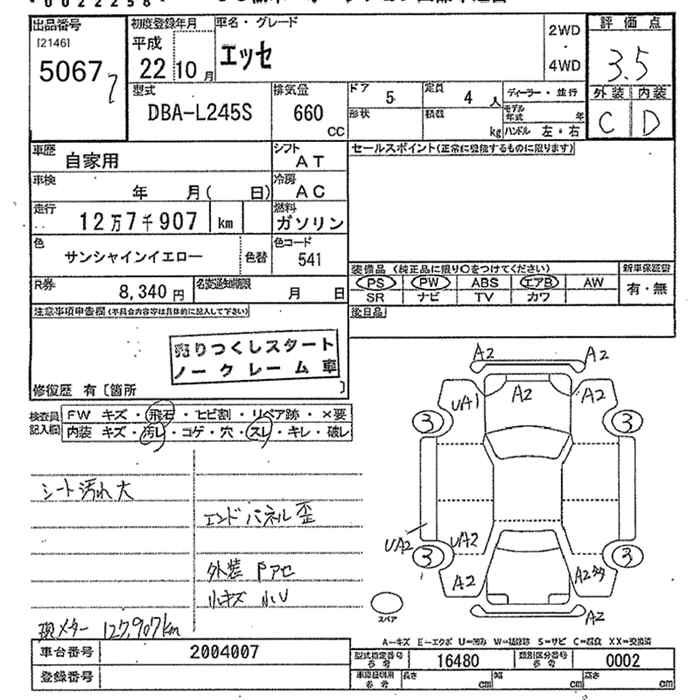 0022258
出品番号 初度登録年月 車名・グレード 評価点
[2146] 平成 エッセ 2WD
・
50677 22年10月 4WD 3.5
型式 排気量 ドア 5 定員 4人 ディーラー・並行 外装 内装
DBA-L245S 660 CC 形状 積載 kg モデル年式 年 C D
ハンドル 左・右
車歴 自家用 シフト AT セールスポイント(正常に登能するものに限ります)
車検 年 月( 日) 冷房 AC
走行 12万7千907 km 燃料 ガソリン
色 サンシャインイエロー 色替 色コード 541
装備品 (純正品に限り○をつけてください) 新車保証書
R券 8,340円 名変通知期限 月 日 PS PW ABS エアB AW 有・無
SR ナビ TV カワ
注意事項申告欄(不具合内容等は具体的に記入して下さい) 後日品
売りつくしスタート
ノークレーム車
修復歴 有〔箇所 〕
検査員記入欄 FW キズ・飛石・ヒビ割・リペア跡・×要
内装 キズ・汚レ・コゲ・穴・スレ・キレ・破レ
シート汚れ大
エンドパネル歪
外装 Pアセ
小キズ 小U
現メター 127,907km
A2 A2
UA1 A2 A2
3 3
UA2 UA2
3 3
A2 A2多
A2
スペア
A=キズ E=エクボ U=凹み W=補修跡 S=サビ C=腐食 XX=交換済
車台番号 2004007 型式指定番号 参考 16480 類別区分番号 参考 0002
登録番号 車庫証明用 参考 長さ cm 幅 cm 高さ cm